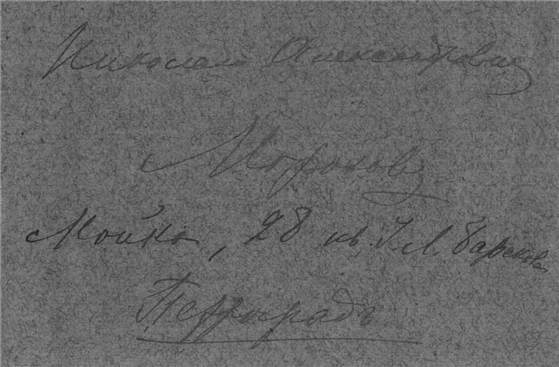 Николай Александрович
Морозов
Мойка, 28 кв. Я. Л. Барскова
Петроградъ